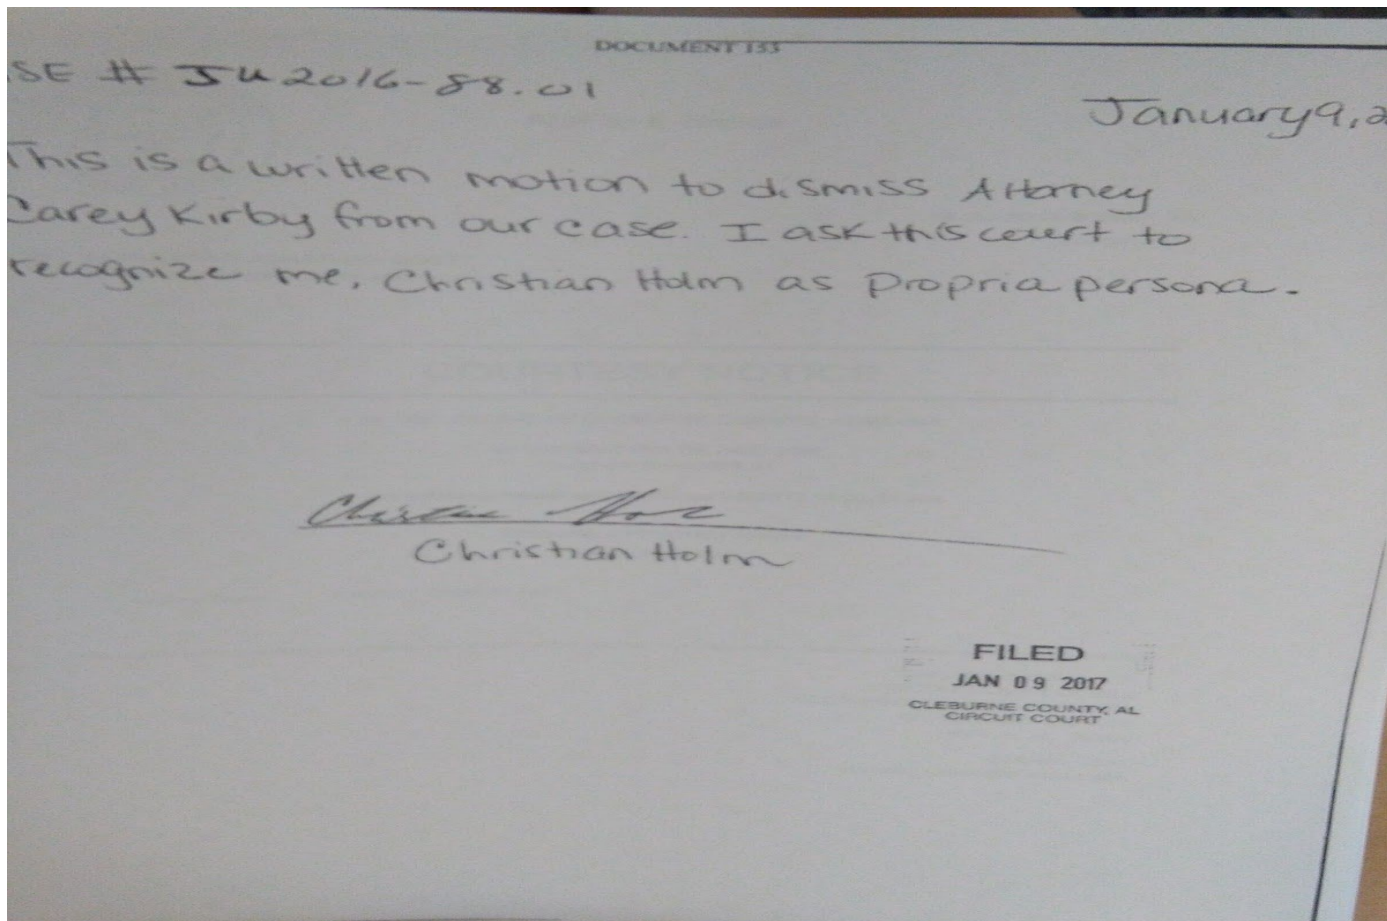 DOCUMENT 153
SE # JU2016-88.01
January 9, 2
This is a written motion to dismiss Attorney
Carey Kirby from our case. I ask this court to
recognize me, Christian Holm as Propria persona.
Christian Holm
FILED
JAN 09 2017
CLEBURNE COUNTY, AL
CIRCUIT COURT